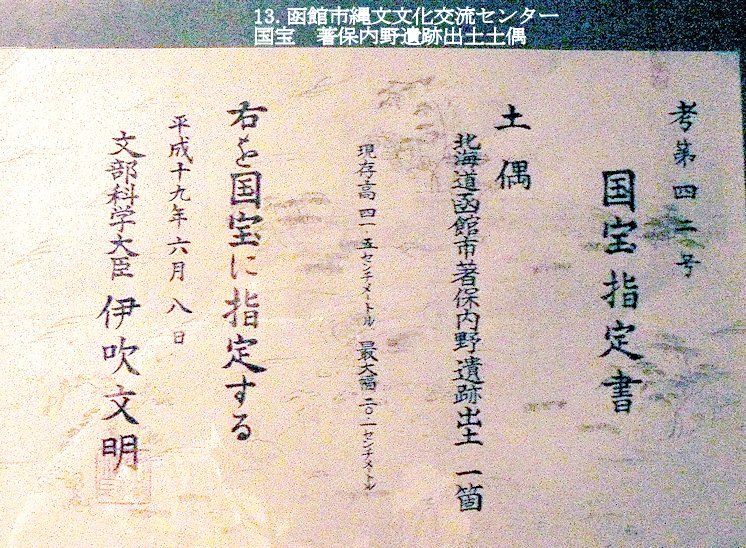 13. 函館市縄文文化交流センター
国宝　著保内野遺跡出土土偶
考第四二号
国宝指定書
土偶
北海道函館市著保内野遺跡出土 一箇
現存高 四一・五センチメートル 最大幅 二〇・一センチメートル
右を国宝に指定する
平成十九年六月八日
文部科学大臣 伊吹文明